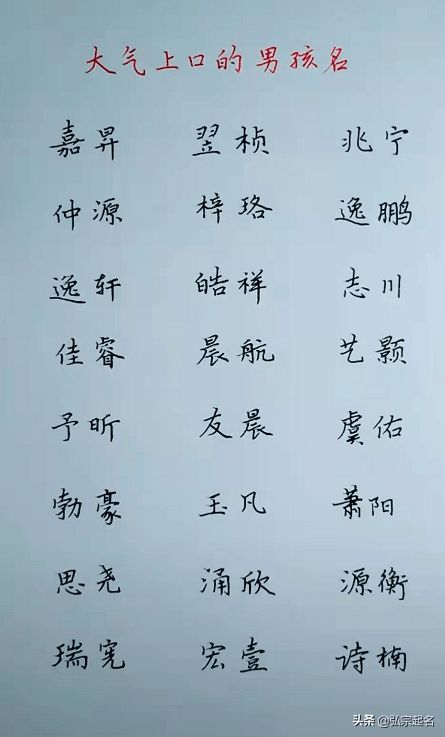 大气上口的男孩名
嘉昇 翌桢 兆宁
仲源 梓珞 逸鹏
逸轩 皓祥 志川
佳睿 晨航 艺颢
予昕 友晨 虞佑
勃豪 玉凡 萧阳
思尧 涌欣 源衡
瑞宪 宏壹 诗楠
头条 @弘宗起名